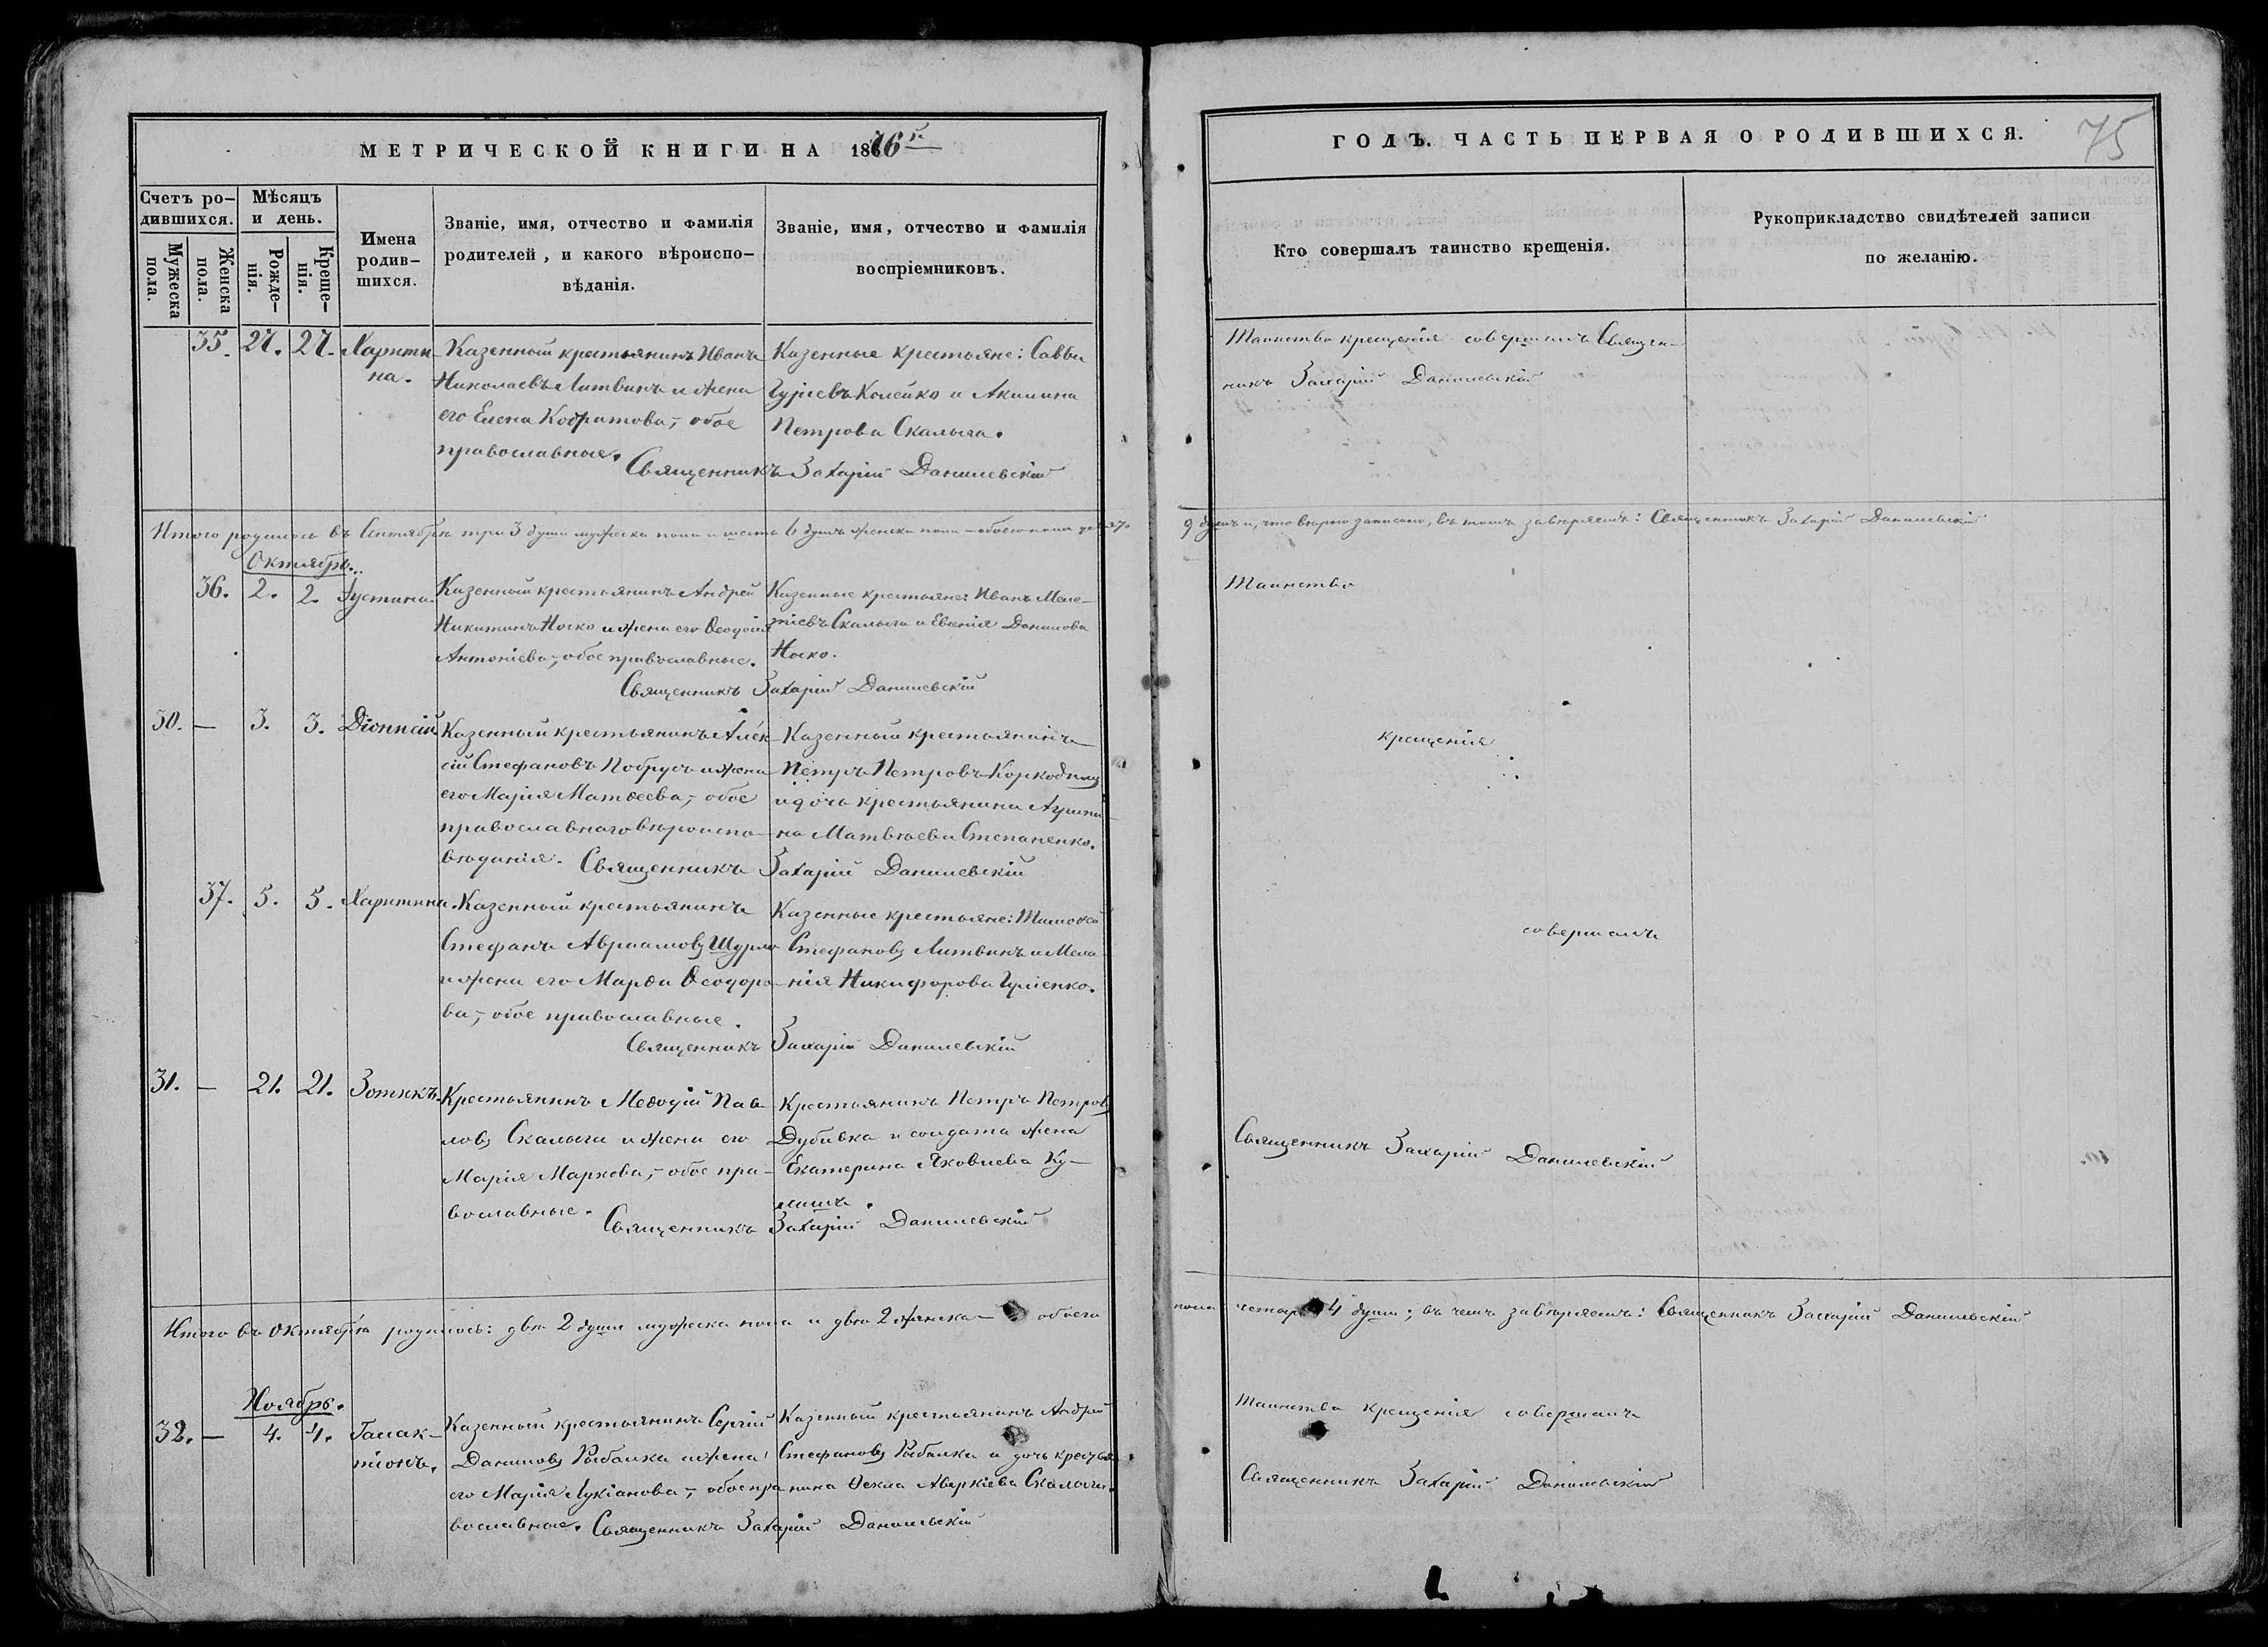 МЕТРИЧЕСКОЙ КНИГИ НА 1876 й
Счетъ родившихся.
Мужеска пола.
Женска пола.
Мѣсяцъ и день.
Рожденія.
Крещенія.
Имена родившихся.
Званіе, имя, отчество и фамилія
родителей, и какого вѣроиспо-
вѣданія.
Званіе, имя, отчество и фамилія
воспріемниковъ.
35. 27. 27. Харити-
на.
Казенный крестьянинъ Иванъ
Николаевъ Литвинъ и жена
его Елена Кодратова, обое
православные.
Казенные крестьяне: Савва
Гуріевъ Колейко и Акилина
Петрова Скалыга.
Священникъ Захарій Данилевскій
Итого родилось въ Сентябрѣ три 3 души мужеска пола и шесть 6 душъ женска пола – обоего пола
Октябрь.
36. 2. 2. Іустина.
Казенный крестьянинъ Андрей
Никитинъ Носко и жена его Ѳеодосія
Антоніева, обое православные.
Казенные крестьяне: Иванъ Меле-
тіевъ Скалыга и Евѳенія Данилова
Носко.
Священникъ Захарій Данилевскій
30. — 3. 3. Діонисій
Казенный крестьянинъ Алек-
сій Стефановъ Побрусъ и жена
его Марія Матѳеева, обое
православнаго вѣроиспо-
вѣданія.
Казенный крестьянинъ
Петръ Петровъ
и дочь крестьянина Агрипи-
на Матвѣева Степаненко.
Священникъ Захарій Данилевскій
37. 5. 5. Харитина.
Казенный крестьянинъ
Стефанъ Авраамовъ Шурло
и жена его Марѳа Ѳеодоро-
ва, обое православные.
Казенные крестьяне: Тимоѳей
Стефановъ Литвинъ и Мела-
нія Никифорова Гуріенко.
Священникъ Захарій Данилевскій
31. — 21. 21. Зотикъ.
Крестьянинъ Меѳодій Пав-
ловъ Скалыга и жена его
Марія Маркова, обое пра-
вославные.
Крестьянинъ Петръ Петровъ
Дубивка и солдата жена
Екатерина Яковлева Ку-
лишъ.
Священникъ Захарій Данилевскій
Итого въ Октябрѣ родилось: двѣ 2 души мужеска пола и двѣ 2 женска – обоего
Ноябрь.
32. — 4. 4. Галак-
тіонъ.
Казенный крестьянинъ Сергій
Даниловъ Рыбалка и жена
его Марія Лукіанова, обое пра-
вославные.
Казенный крестьянинъ Андрей
Стефановъ Рыбалка и дочь крестья-
нина Ѳекла Аверкіева Скалыга.
Священникъ Захарій Данилевскій
ГОДЪ. ЧАСТЬ ПЕРВАЯ О РОДИВШИХСЯ.
75
Кто совершалъ таинство крещенія.
Рукоприкладство свидѣтелей записи
по желанію.
Таинство крещенія совершилъ Священ-
никъ Захарій Данилевскій
9 душъ и, что вѣрно записано, въ томъ завѣряемъ: Священникъ Захарій Данилевскій
Таинство
крещенія
совершалъ
Священникъ Захарій Данилевскій
пола четыре 4 души; въ чемъ завѣряемъ: Священникъ Захарій Данилевскій
Таинство крещенія совершалъ
Священникъ Захарій Данилевскій